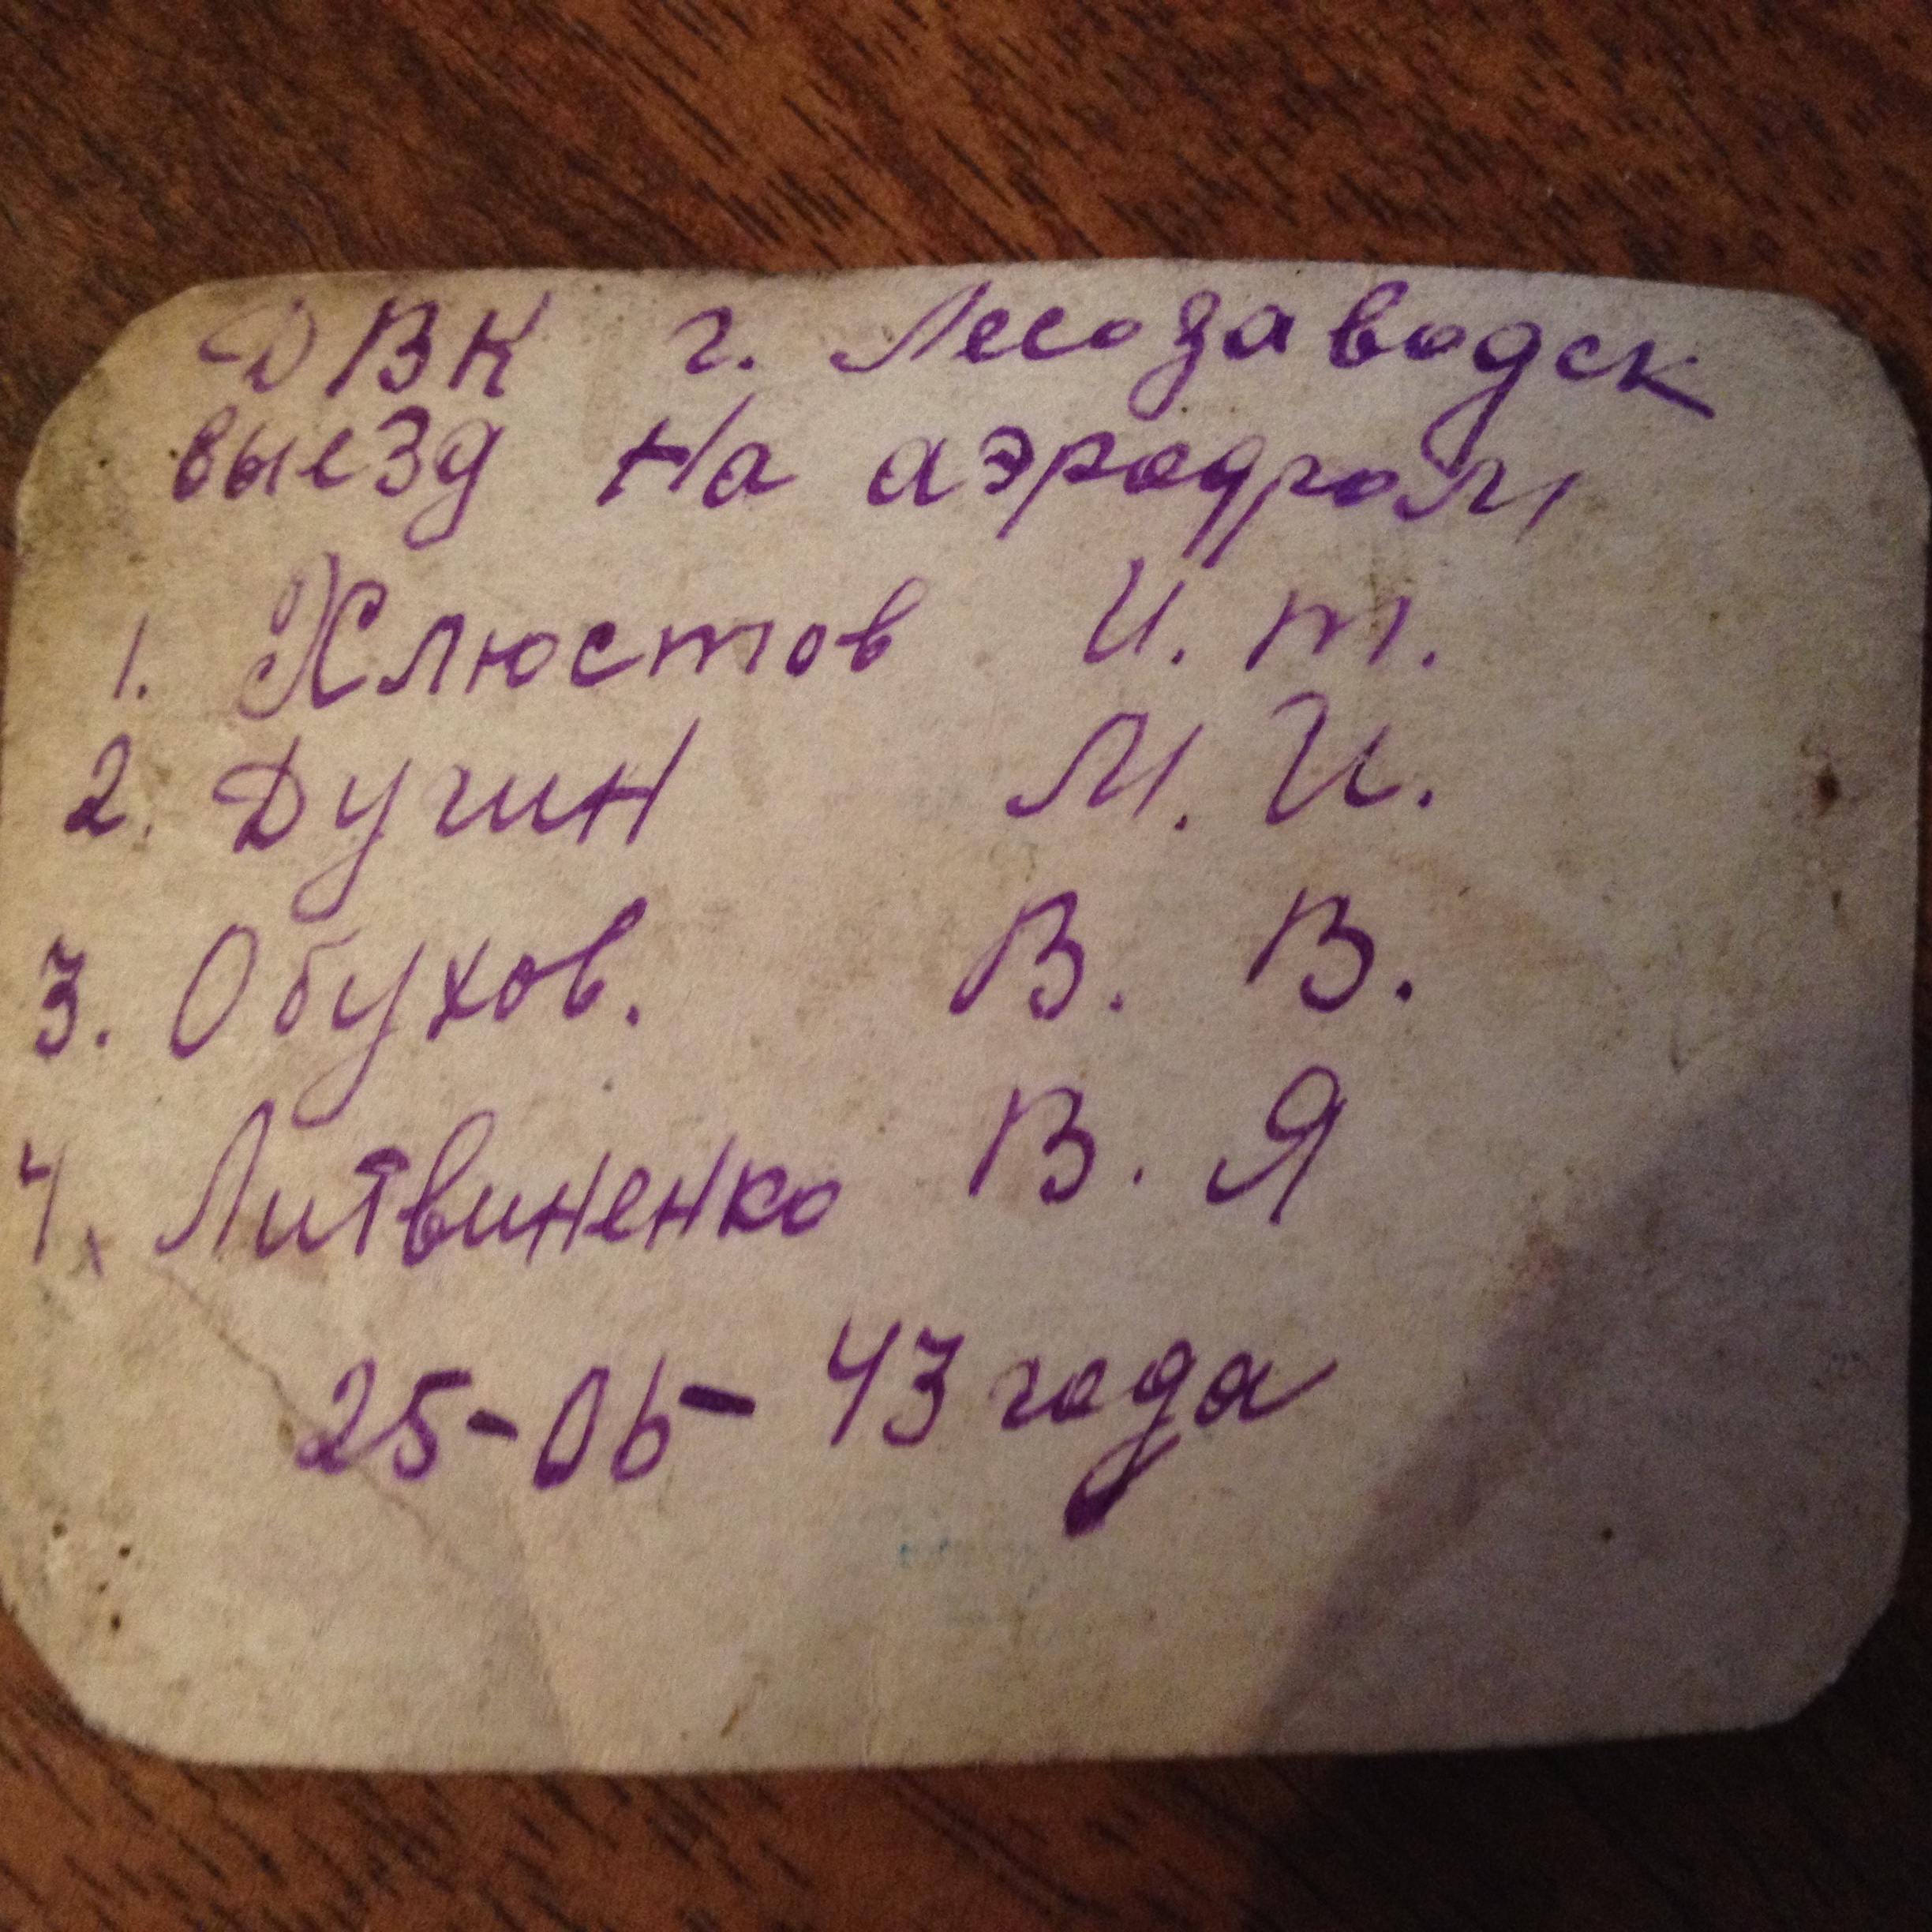 ДВК г. Лесозаводск
выезд на аэродром
1. Хлюстов И. т.
2. Дугин М. И.
3. Обухов. В. В.
4. Литвиненко В. Я
25-06-43 года